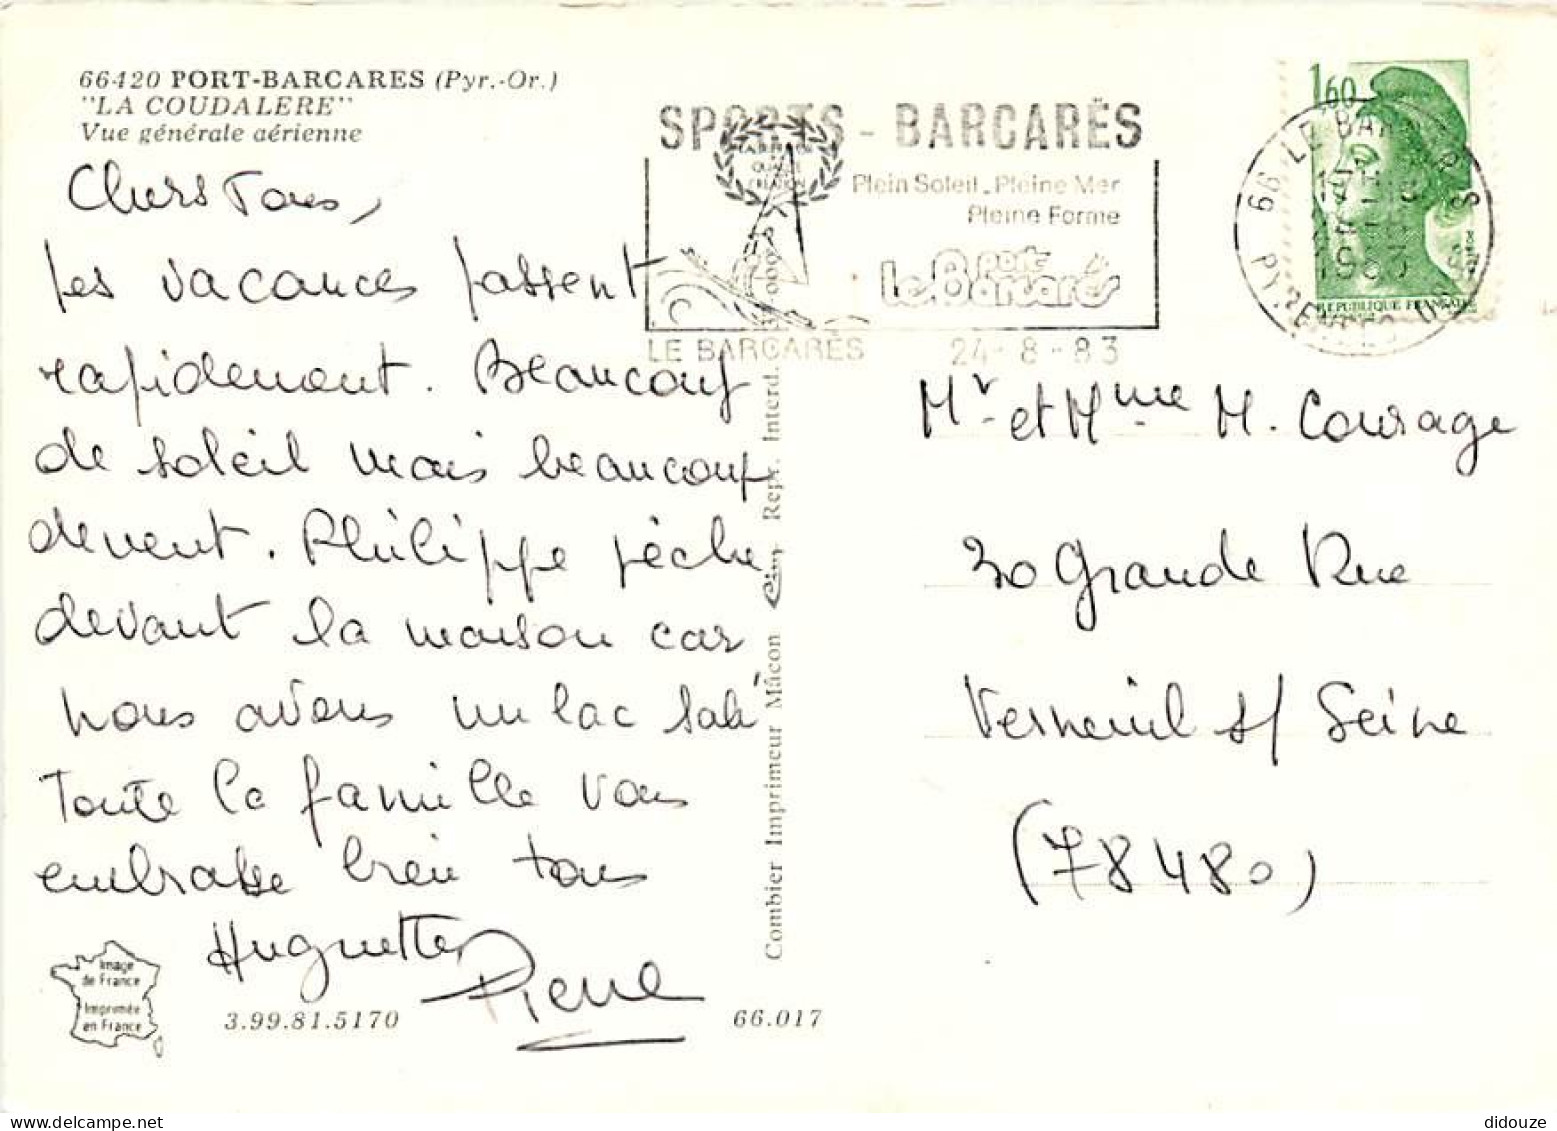 66420 PORT-BARCARES (Pyr.-Or.)
"LA COUDALERE"
Vue générale aérienne
Chers Tous,
les vacances passent
rapidement. Beaucoup
de soleil mais beaucoup
devent. Philippe pèche
devant la maison car
nous avons un lac salé
Toute la famille vous
embrasse bien tous
Huguette
Pierre
Image
de France
Imprimée
en France
3.99.81.5170
66.017
Combier Imprimeur Mâcon Cim Repr. Interd.
SPORTS - BARCARÈS
Plein Soleil _ Pleine Mer
Pleine Forme
port
le Barcarés
LE BARCARÈS 24-8-83
1,60
REPUBLIQUE FRANÇAISE
66 LE BARCARES
PYRENEES OR
Mr et Mme M. Courage
30 Grande Rue
Verneuil s/ Seine
(78480)
didouze